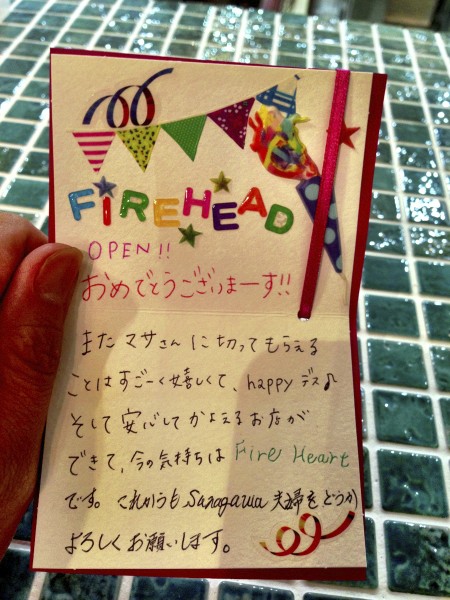 FIREHEAD
OPEN!!
おめでとうございまーす!!
またマサさんに切ってもらえる
ことはすごーく嬉しくて、happyデス♪
そして安心してかよえるお店が
できて、今の気持ちは Fire Heart
です。これからもSanagawa夫婦をどうか
よろしくお願いします。